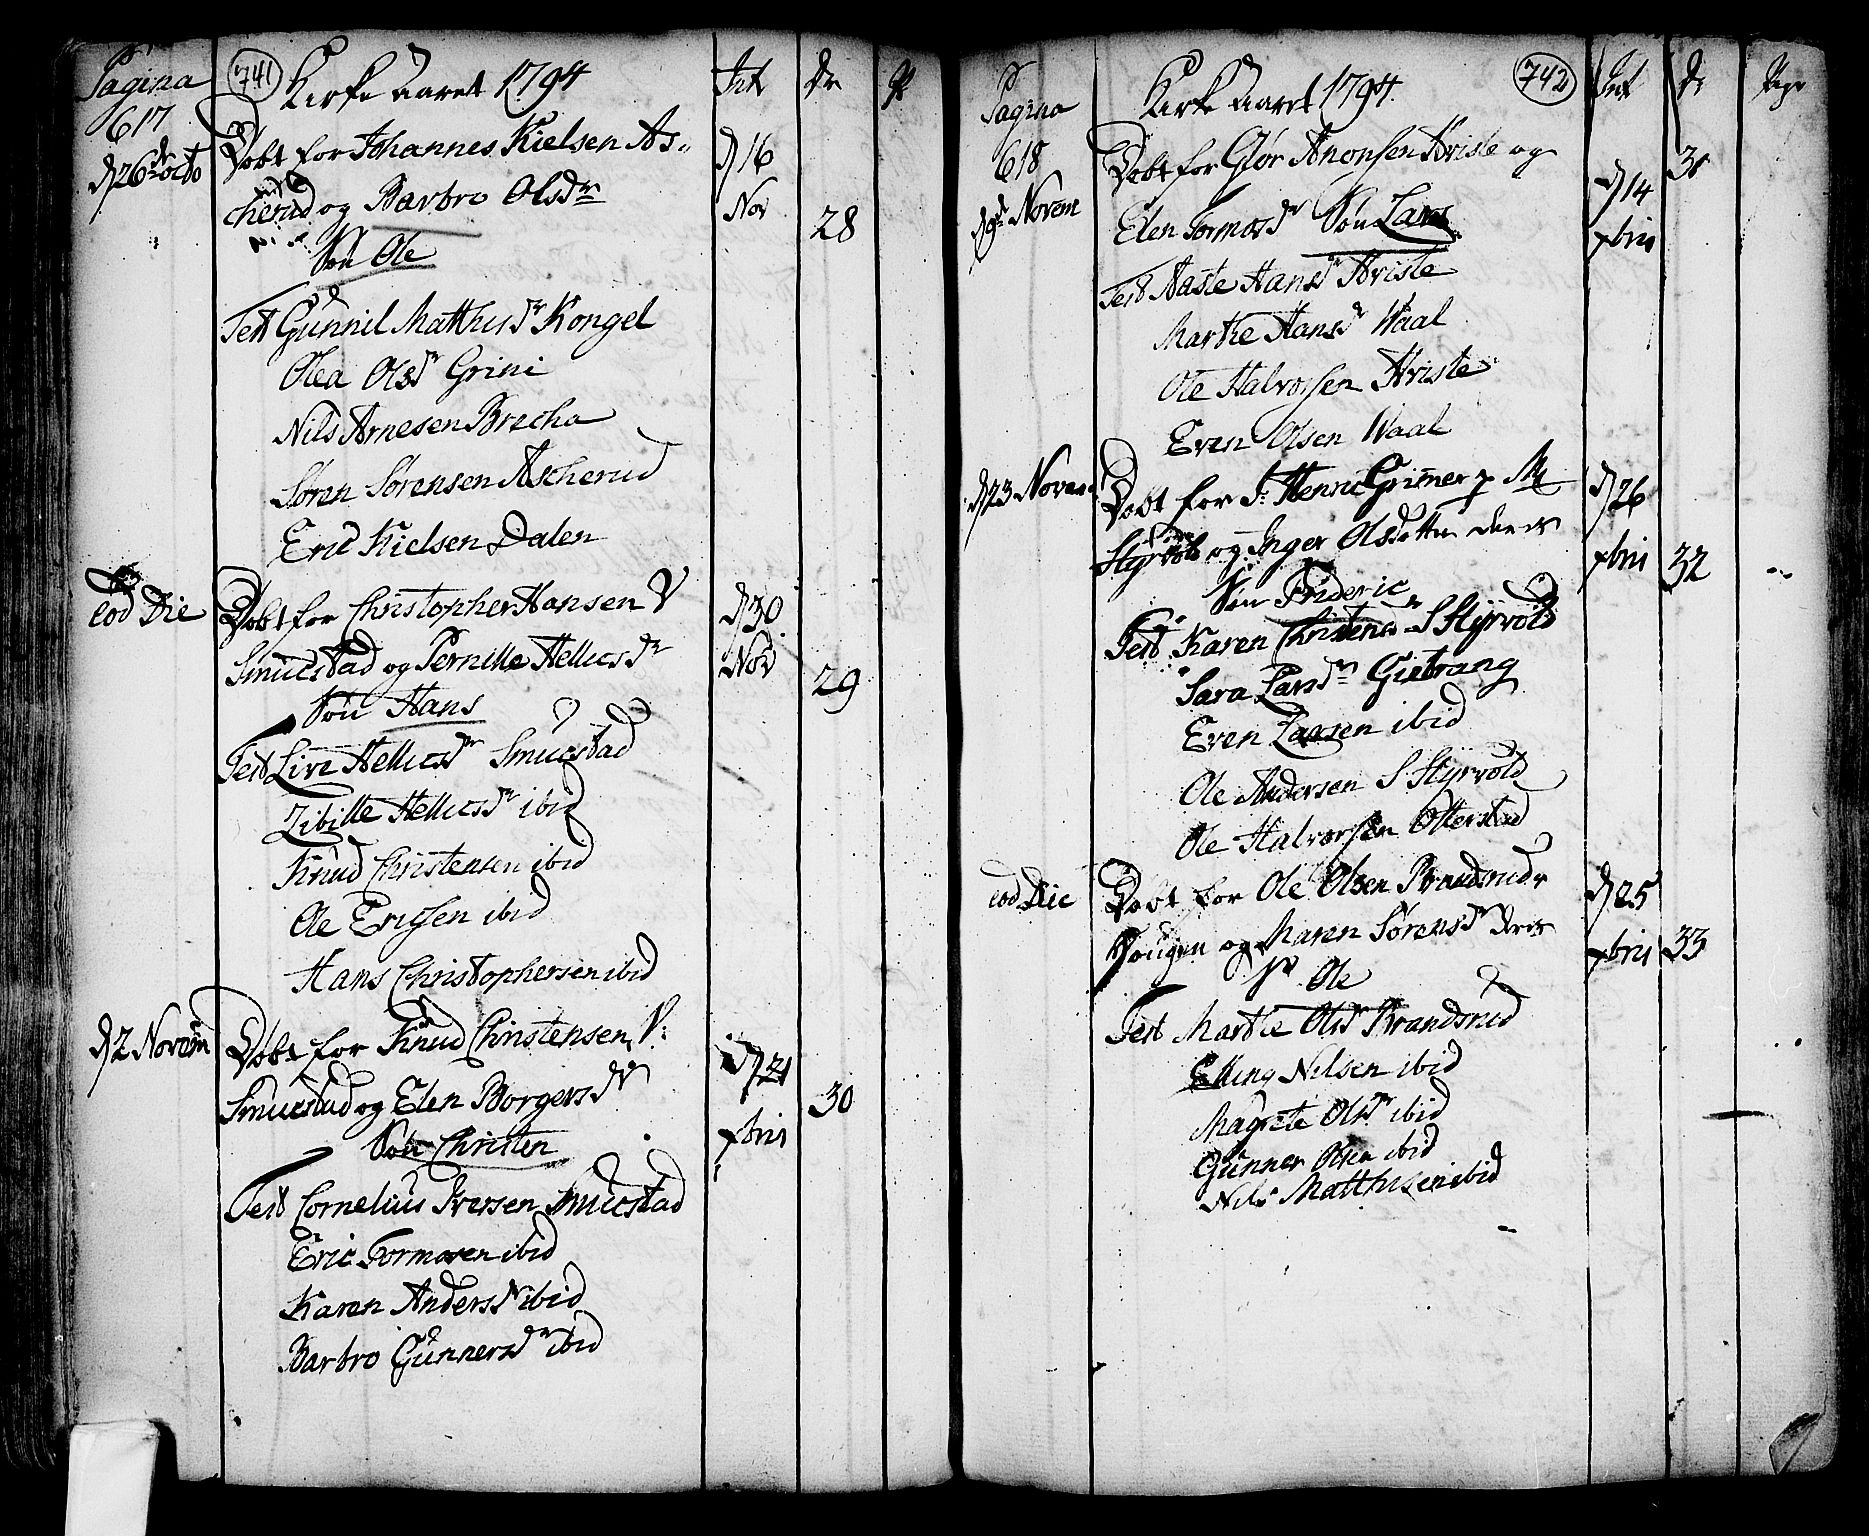 Pagina
617
741
Kirke Aaret 1794
Int
Dr
d 26de octo
Døbt for Johannes Kielsen As-
cherud og Barbro Olsdr
Søn Ole
d 16
Nov
28
Test Gunnil Matthisdr Kongel
Olea Olsdr Grini
Nils Arnesen Brecha
Søren Sørensen Ascherud
Eric Kielsen Dalen
eod Die
Døbt for Christopher Hansen V
Smucstad og Pernille Hellicsdr
Søn Hans
d 30
Nov
29
Test Live Hellicsdr Smucstad
Zibille Hellicsdr ibid
Knud Christensen ibid
Ole Ericsen ibid
Hans Christophersen ibid
d 2 Novem
Døbt for Knud Christensen V:
Smucstad og Elen Borgersdr
Søn Christen
d 21
xbris
30
Test Cornelius Iversen Smucstad
Eric Tormosen ibid
Karen Andersdr ibid
Barbro Gunnersdr ibid
Pagina
618
Kirke Aaret 1794.
742
Int
Dr
d 9de Novem
Døbt for Glør Anonsen Hviste og
Elen Tormosdr Søn Lars
d 14
xbris
31
Test Aaste Hansdr Hviste
Marthe Hansdr Waal
Ole Halvorsen Hviste
Even Olsen Waal
d 23 Novem
Døbt for S: Henric Grimer p M
Styrvold og Inger Olsdatter deres
Søn Frideric
d 26
xbris
32
Test Karen Christensdr S Styrvold
Sara Larsdr Gietrang
Even Larsen ibid
Ole Andersen S Styrvold
Ole Halvorsen Olterstad
eod Die
Døbt for Ole Olsen Brandsrud
Hougen og Maren Sørensdr deres
Sr Ole
d 25
xbris
33
Test Marthe Olsdr Brandsrud
Elling Nilsen ibid
Magrete Olsdr ibid
Gunner Olsen ibid
Nils Matthisen ibid